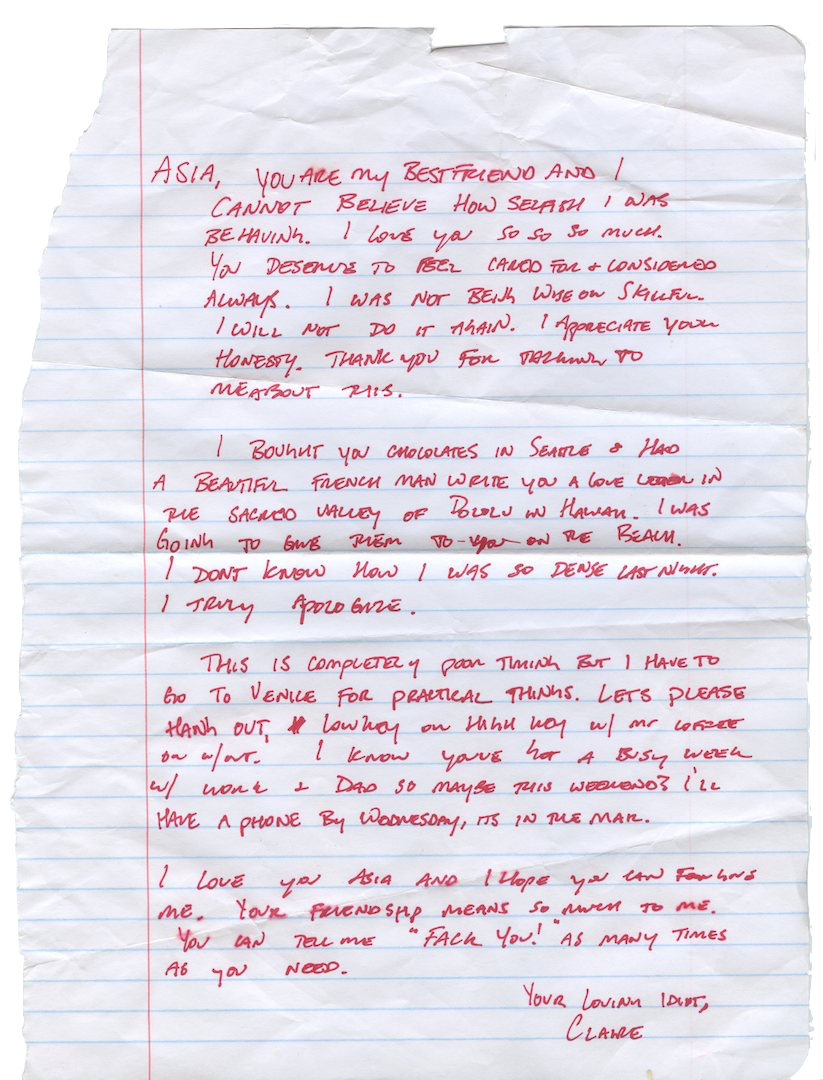 ASIA, YOU ARE MY BEST FRIEND AND I
CANNOT BELIEVE HOW SELFISH I WAS
BEHAVING. I LOVE YOU SO SO SO MUCH.
YOU DESERVE TO FEEL CARED FOR + CONSIDERED
ALWAYS. I WAS NOT BEING WISE OR SKILLFUL.
I WILL NOT DO IT AGAIN. I APPRECIATE YOUR
HONESTY. THANK YOU FOR TALKING TO
ME ABOUT THIS.
I BOUGHT YOU CHOCOLATES IN SEATTLE & HAD
A BEAUTIFUL FRENCH MAN WRITE YOU A LOVE LETTER IN
THE SACRED VALLEY OF POLOLU IN HAWAII. I WAS
GOING TO GIVE THEM TO YOU ON THE BEACH.
I DONT KNOW HOW I WAS SO DENSE LAST NIGHT.
I TRULY APOLOGIZE.
THIS IS COMPLETELY POOR TIMING BUT I HAVE TO
GO TO VENICE FOR PRACTICAL THINGS. LETS PLEASE
HANG OUT, LOW KEY OR HIGH KEY W/ MR COFFEE
OR W/OUT. I KNOW YOUVE GOT A BUSY WEEK
W/ WORK + DAD SO MAYBE THIS WEEKEND? I'LL
HAVE A PHONE BY WEDNESDAY, ITS IN THE MAIL.
I LOVE YOU ASIA AND I HOPE YOU CAN FORGIVE
ME. YOUR FRIENDSHIP MEANS SO MUCH TO ME.
YOU CAN TELL ME "FACK YOU!" AS MANY TIMES
AS YOU NEED.
YOUR LOVING IDIOT,
CLAIRE